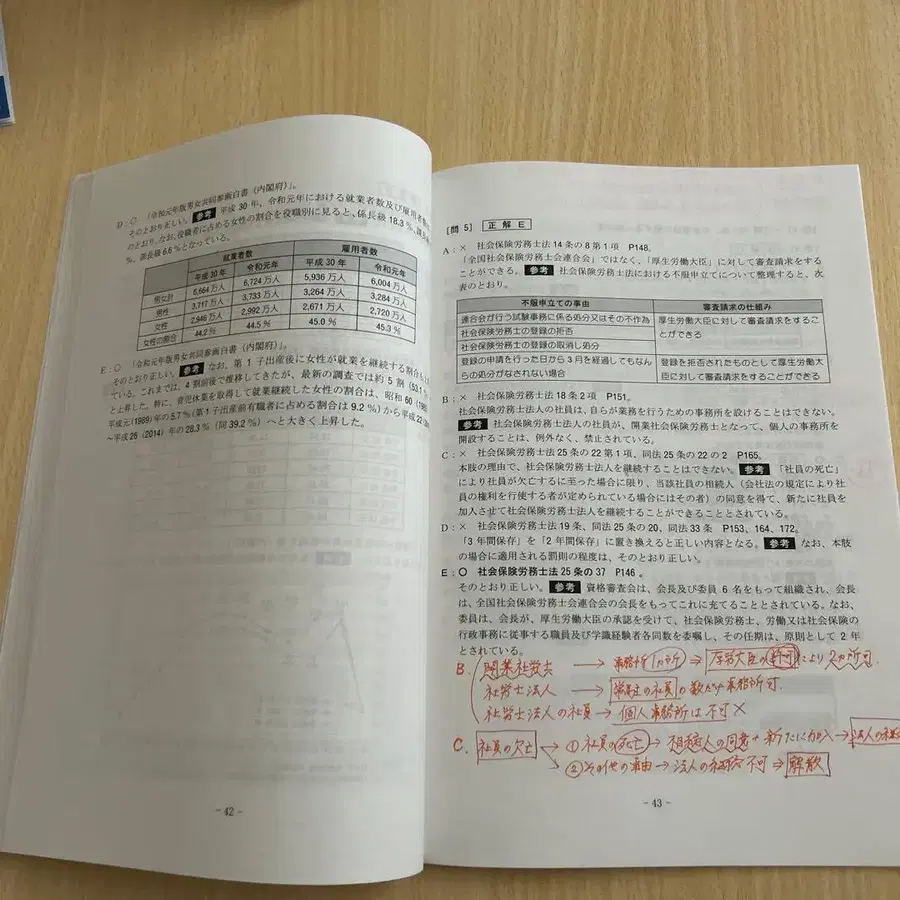 D：○ 「令和元年版男女共同参画白書（内閣府）」。
そのとおり正しい。 参考 平成 30 年、令和元年における就業者数及び雇用者数
のとおり。なお、役職者に占める女性の割合を役職別に見ると、係長級 18.3 %、課長
%、部長級 6.6 %となっている。
就業者数 雇用者数
平成 30 年 令和元年 平成 30 年 令和元年
男女計 6,664 万人 6,724 万人 5,936 万人 6,004 万人
男性 3,717 万人 3,733 万人 3,264 万人 3,284 万人
女性 2,946 万人 2,992 万人 2,671 万人 2,720 万人
女性の割合 44.2 % 44.5 % 45.0 % 45.3 %
E：○ 「令和元年版男女共同参画白書（内閣府）」。
そのとおり正しい。 参考 なお、第 1 子出産後に女性が就業を継続する割合も
ている。これまでは、4 割前後で推移してきたが、最新の調査では約 5 割（53.1 %
と上昇した。特に、育児休業を取得して就業継続した女性の割合は、昭和 60（1985
平成元(1989)年の 5.7 %（第 1 子出産前有職者に占める割合は 9.2 %）から平成 22（20
～平成 26（2014）年の 28.3 %（同 39.2 %）へと大きく上昇した。
- 42 -
［問 5］ 正解 E
A：× 社会保険労務士法 14 条の 8 第 1 項 P148。
「全国社会保険労務士会連合会」ではなく、「厚生労働大臣」に対して審査請求をする
ことができる。 参考 社会保険労務士法における不服申立てについて整理すると、次
表のとおり。
不服申立ての事由 審査請求の仕組み
連合会が行う試験事務に係る処分又はその不作為 厚生労働大臣に対して審査請求をするこ
社会保険労務士の登録の拒否 とができる
社会保険労務士の登録の取消し処分
登録の申請を行った日から 3 月を経過してもなん 登録を拒否されたものとして厚生労働大
らの処分がなされない場合 臣に対して審査請求をすることができる
B：× 社会保険労務士法 18 条 2 項 P151。
社会保険労務士法人の社員は、自らが業務を行うための事務所を設けることはできない。
参考 社会保険労務士法人の社員が、開業社会保険労務士となって、個人の事務所を
開設することは、例外なく、禁止されている。
C：× 社会保険労務士法 25 条の 22 第 1 項、同法 25 条の 22 の 2 P165。
本肢の理由で、社会保険労務士法人を継続することはできない。 参考 「社員の死亡」
により社員が欠亡するに至った場合に限り、当該社員の相続人（会社法の規定により社
員の権利を行使する者が定められている場合にはその者）の同意を得て、新たに社員を
加入させて社会保険労務士法人を継続することができることとされている。
D：× 社会保険労務士法 19 条、同法 25 条の 20、同法 33 条 P153、164、172。
「3 年間保存」を「2 年間保存」に置き換えると正しい内容となる。 参考 なお、本肢
の場合に適用される罰則の程度は、そのとおり正しい。
E：○ 社会保険労務士法 25 条の 37 P146 。
そのとおり正しい。 参考 資格審査会は、会長及び委員 6 名をもって組織され、会長
は、全国社会保険労務士会連合会の会長をもってこれに充てることとされている。なお、
委員は、会長が、厚生労働大臣の承認を受けて、社会保険労務士、労働又は社会保険の
行政事務に従事する職員及び学識経験者各同数を委嘱し、その任期は、原則として 2 年
とされている。
B. 開業社労士 → 事務所 1ヵ所 ⇒ 厚労大臣の許可により 2ヵ所可.
社労士法人 → 常駐の社員の数だけ事務所可.
社労士法人の社員 → 個人事務所は不可 ×
C. 社員の欠亡 → ① 社員の死亡 → 相続人の同意 + 新たに加入 → 法人の継続
→ ② その他の事由 → 法人の継続 不可 ⇒ 解散
- 43 -